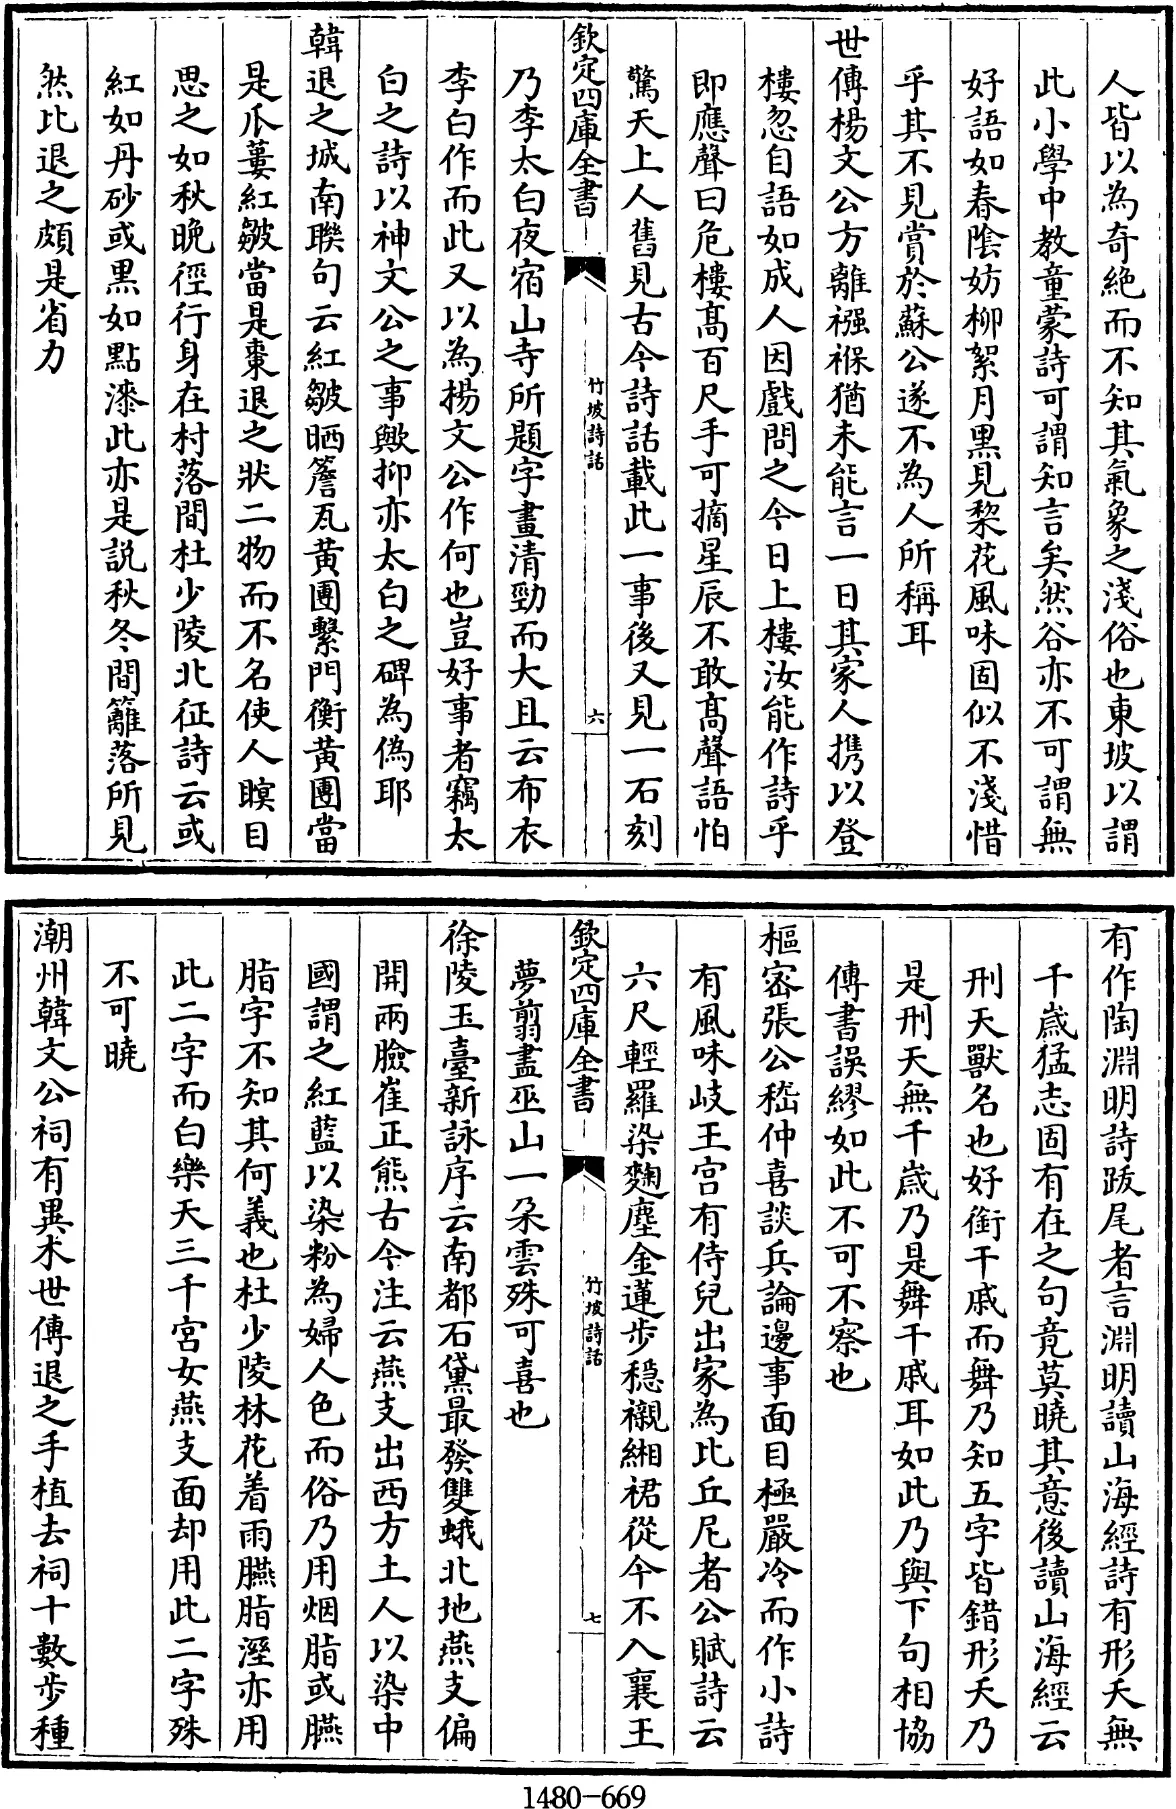 人皆以為奇絶而不知其氣象之淺俗也東坡以謂
此小學中教童蒙詩可謂知言矣然谷亦不可謂無
好語如春陰妨柳絮月黒見棃花風味固似不淺惜
乎其不見賞於蘇公遂不為人所稱耳
世傳楊文公方離襁褓猶未能言一日其家人携以登
樓忽自語如成人因戲問之今日上樓汝能作詩乎
即應聲曰危樓髙百尺手可摘星辰不敢髙聲語怕
驚天上人舊見古今詩話載此一事後又見一石刻
欽定四庫全書
竹坡詩話
六
乃李太白夜宿山寺所題字畫清勁而大且云布衣
李白作而此又以為楊文公作何也豈好事者竊太
白之詩以神文公之事歟抑亦太白之碑為偽耶
韓退之城南聯句云紅皺晒簷瓦黄團繫門衡黄團當
是瓜蔞紅皺當是棗退之狀二物而不名使人瞑目
思之如秋晩徑行身在村落間杜少陵北征詩云或
紅如丹砂或黒如點漆此亦是説秋冬間籬落所見
然比退之頗是省力
有作陶淵明詩跋尾者言淵明讀山海經詩有形夭無
千歳猛志固有在之句竟莫曉其意後讀山海經云
刑天獸名也好銜干戚而舞乃知五字皆錯形夭乃
是刑天無千歳乃是舞干戚耳如此乃與下句相協
傳書誤繆如此不可不察也
樞密張公嵇仲喜談兵論邊事面目極嚴冷而作小詩
有風味岐王宫有侍兒出家為比丘尼者公賦詩云
六尺輕羅染麴塵金蓮步穏襯緗裙從今不入襄王
欽定四庫全書
竹坡詩話
七
夢翦盡巫山一朶雲殊可喜也
徐陵玉臺新詠序云南都石黛最發雙蛾北地燕支偏
開兩臉崔正熊古今注云燕支出西方土人以染中
國謂之紅藍以染粉為婦人色而俗乃用烟脂或臙
脂字不知其何義也杜少陵林花着雨臙脂溼亦用
此二字而白樂天三千宮女燕支面却用此二字殊
不可曉
潮州韓文公祠有異木世傳退之手植去祠十數步種
1480-669